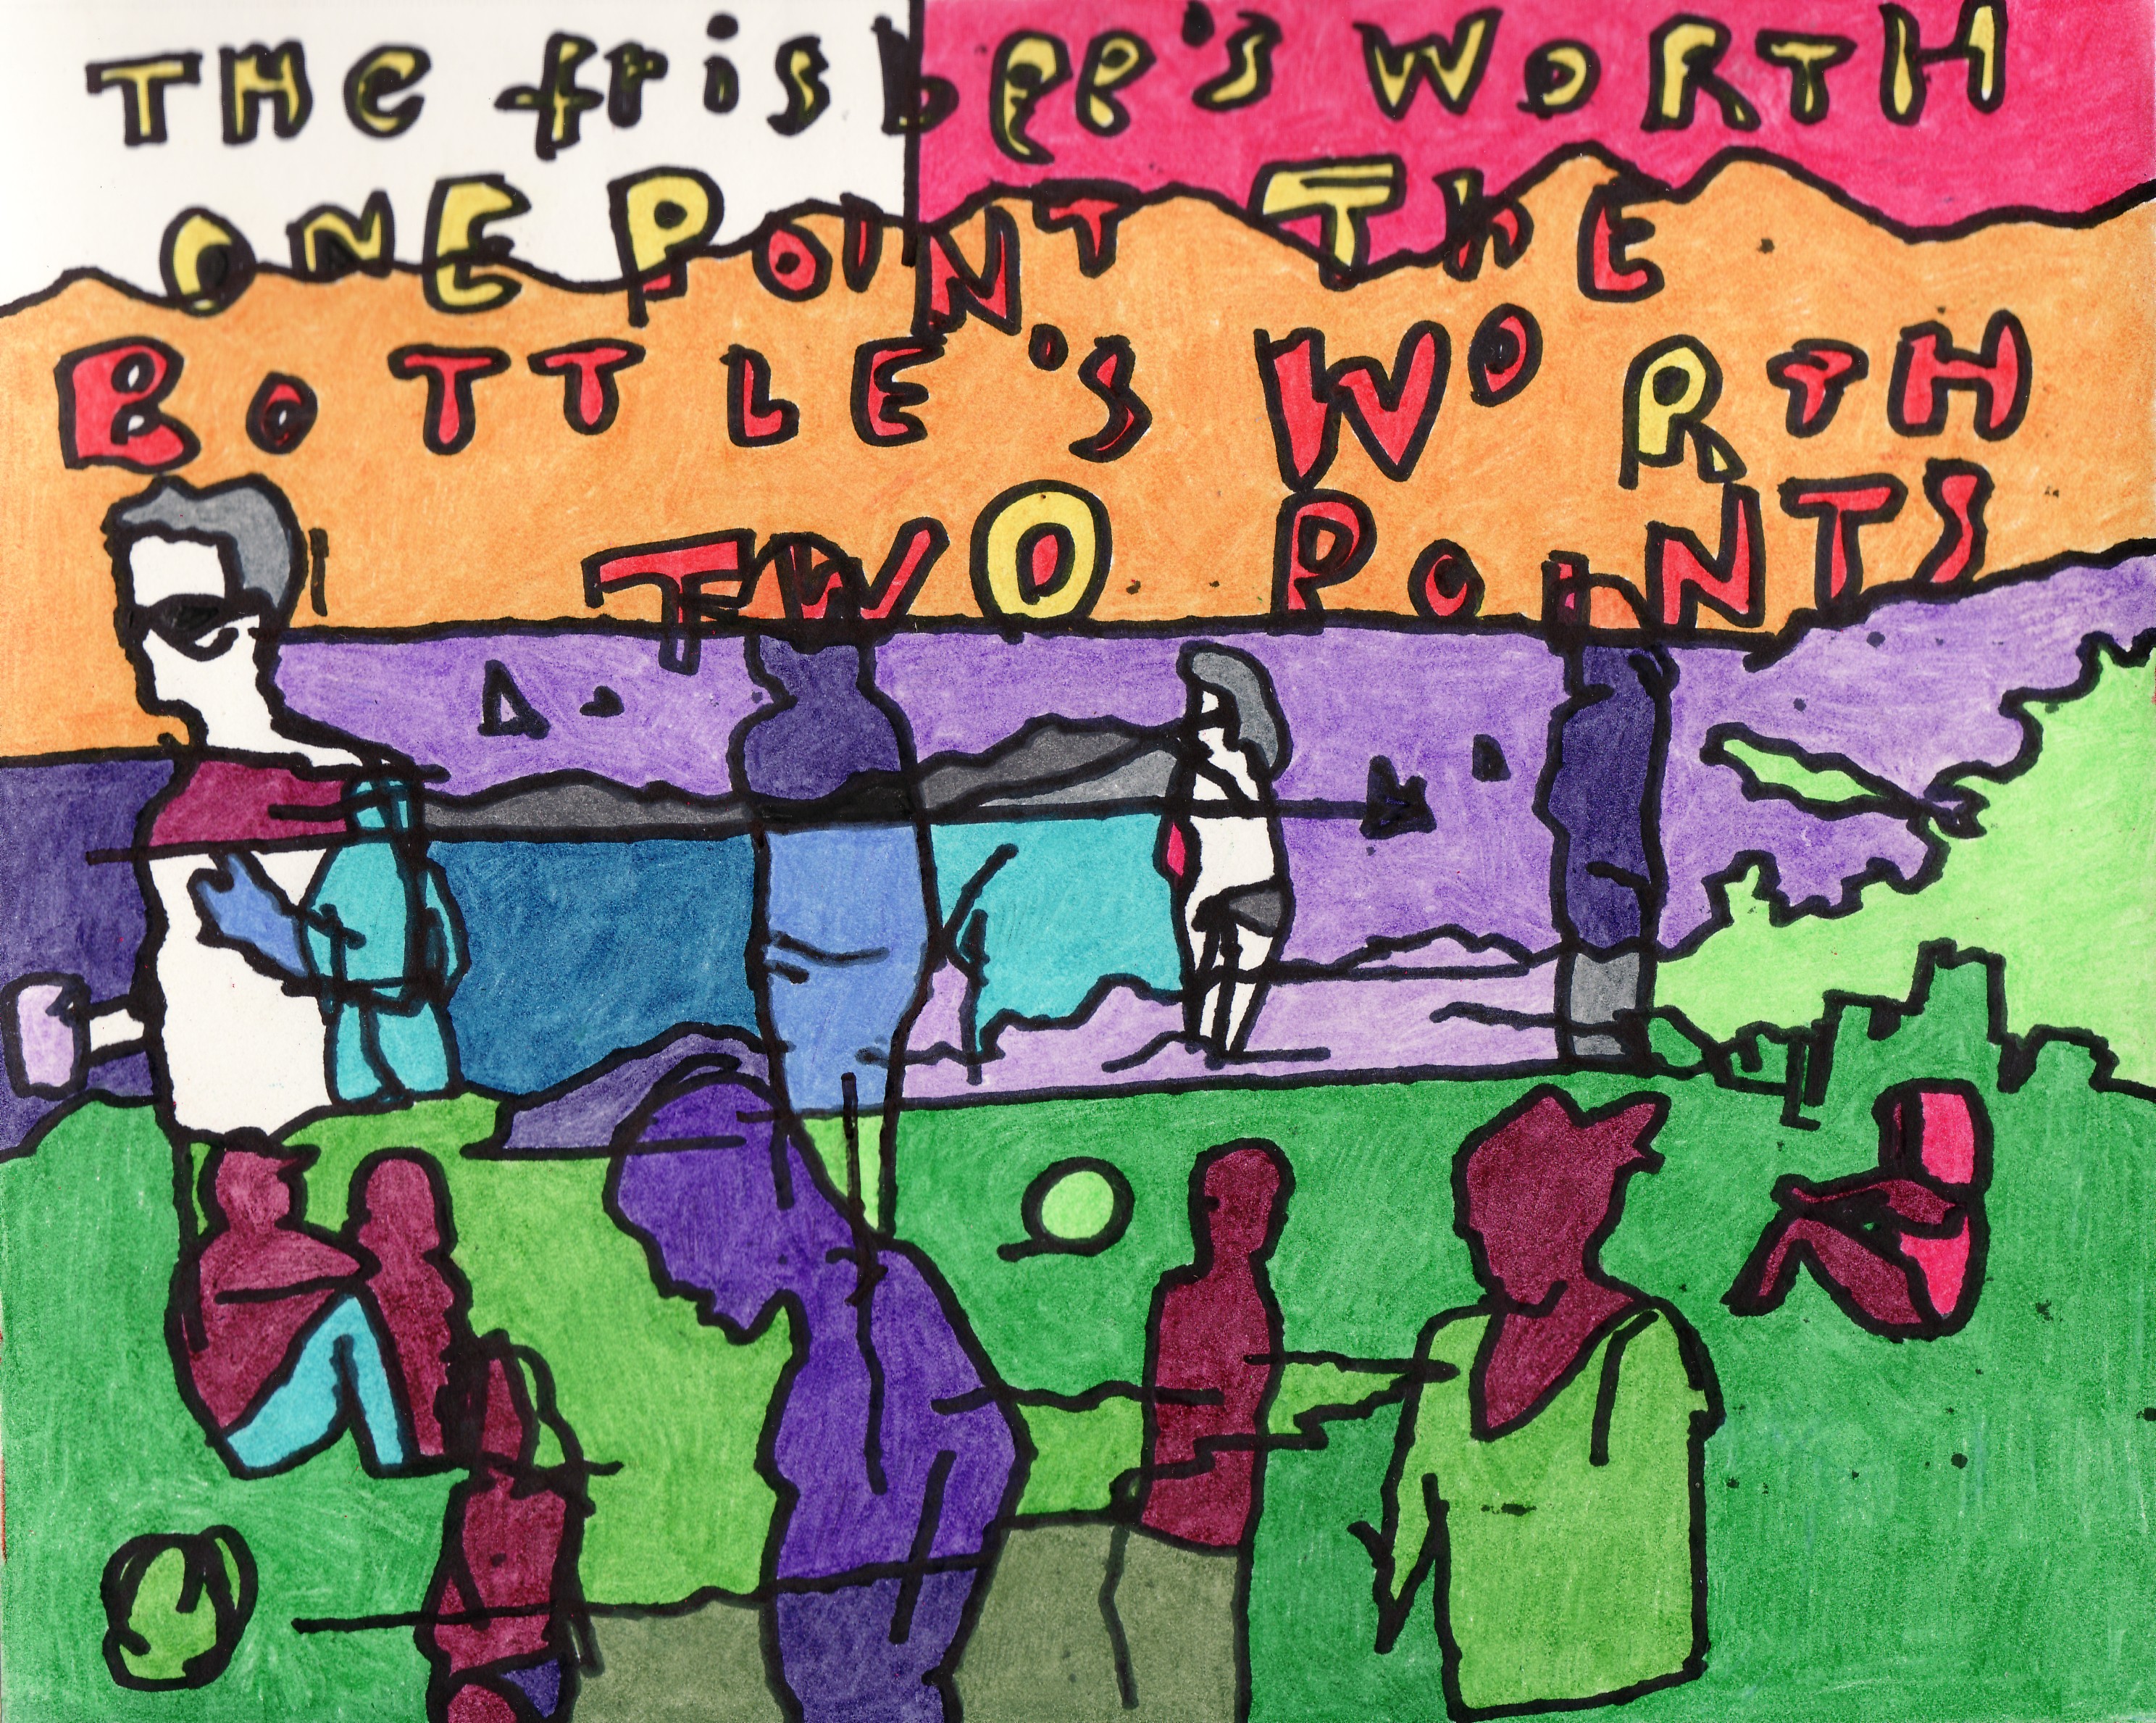 THe frisbee's WoRTH
ONE POINT THE
BoTTLE'S WORTH
TWO POINTS